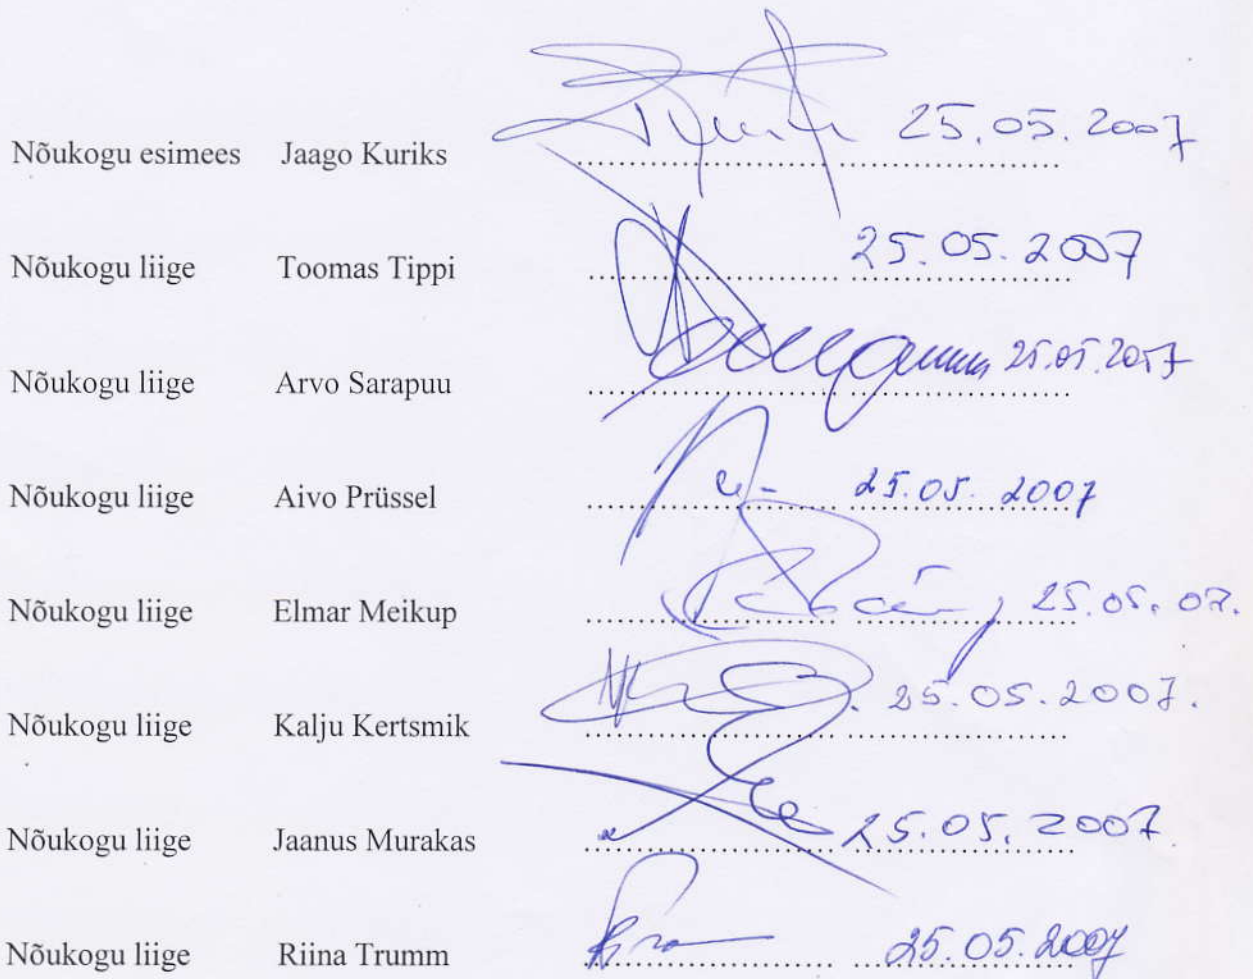 Nõukogu esimees Jaago Kuriks 25.05.2007
Nõukogu liige Toomas Tippi 25.05.2007
Nõukogu liige Arvo Sarapuu 25.05.2007
Nõukogu liige Aivo Prüssel 25.05.2007
Nõukogu liige Elmar Meikup 25.05.07.
Nõukogu liige Kalju Kertsmik 25.05.2007.
Nõukogu liige Jaanus Murakas 25.05.2007
Nõukogu liige Riina Trumm 25.05.2007